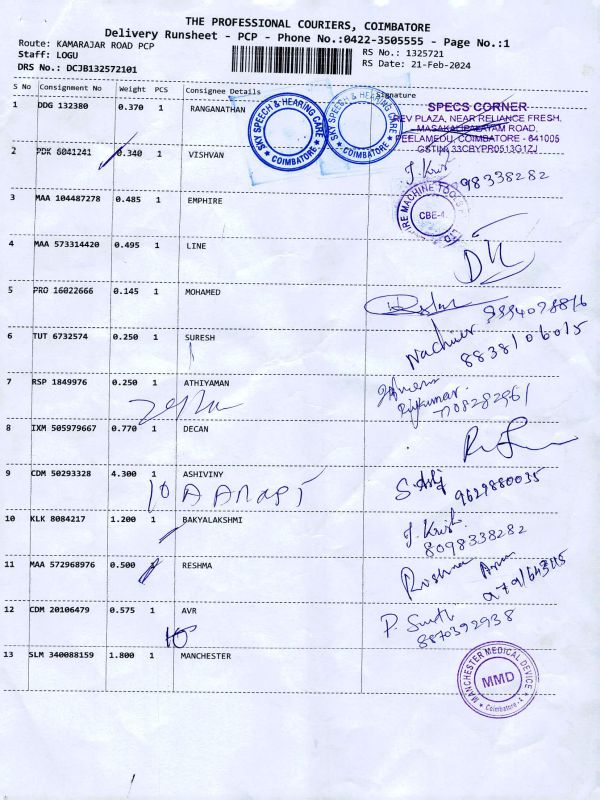 THE PROFESSIONAL COURIERS, COIMBATORE
Delivery Runsheet - PCP - Phone No.:0422-3505555 - Page No.:1
Route: KAMARAJAR ROAD PCP
Staff: LOGU
DRS No.: DCJB132572101
RS No.: 1325721
RS Date: 21-Feb-2024
S No Consignment No Weight PCS Consignee Details Signature
1 DDG 132380 0.370 1 RANGANATHAN
SAY SPEECH & HEARING CARE
★ COIMBATORE ★
SAY SPEECH & HEARING CARE
★ COIMBATORE ★
SPECS CORNER
REV PLAZA, NEAR RELIANCE FRESH,
MASAKALIPALAYAM ROAD,
PEELAMEDU, COIMBATORE - 641005
GSTIN: 33CBYPR0513G1ZJ
2 PDK 6041241 0.340 1 VISHVAN
J. Krish
98338282
3 MAA 104487278 0.485 1 EMPHIRE
MACHINE TOOLS
CBE-4.
4 MAA 573314420 0.495 1 LINE
5 PRO 16022666 0.145 1 MOHAMED
6 TUT 6732574 0.250 1 SURESH
Nachier
8838106015
7 RSP 1849976 0.250 1 ATHIYAMAN
Rajkumar.
7708282961
8 IXM 505979667 0.770 1 DECAN
9 CDM 50293328 4.300 1 ASHIVINY
9629880035
10 KLK 8084217 1.200 1 BAKYALAKSHMI
J. Krish
8098338282
11 MAA 572968976 0.500 1 RESHMA
Roshna
12 CDM 20106479 0.575 1 AVR
8870392938
13 SLM 340088159 1.800 1 MANCHESTER
MANCHESTER MEDICAL DEVICE
MMD
★ Coimbatore-4 ★